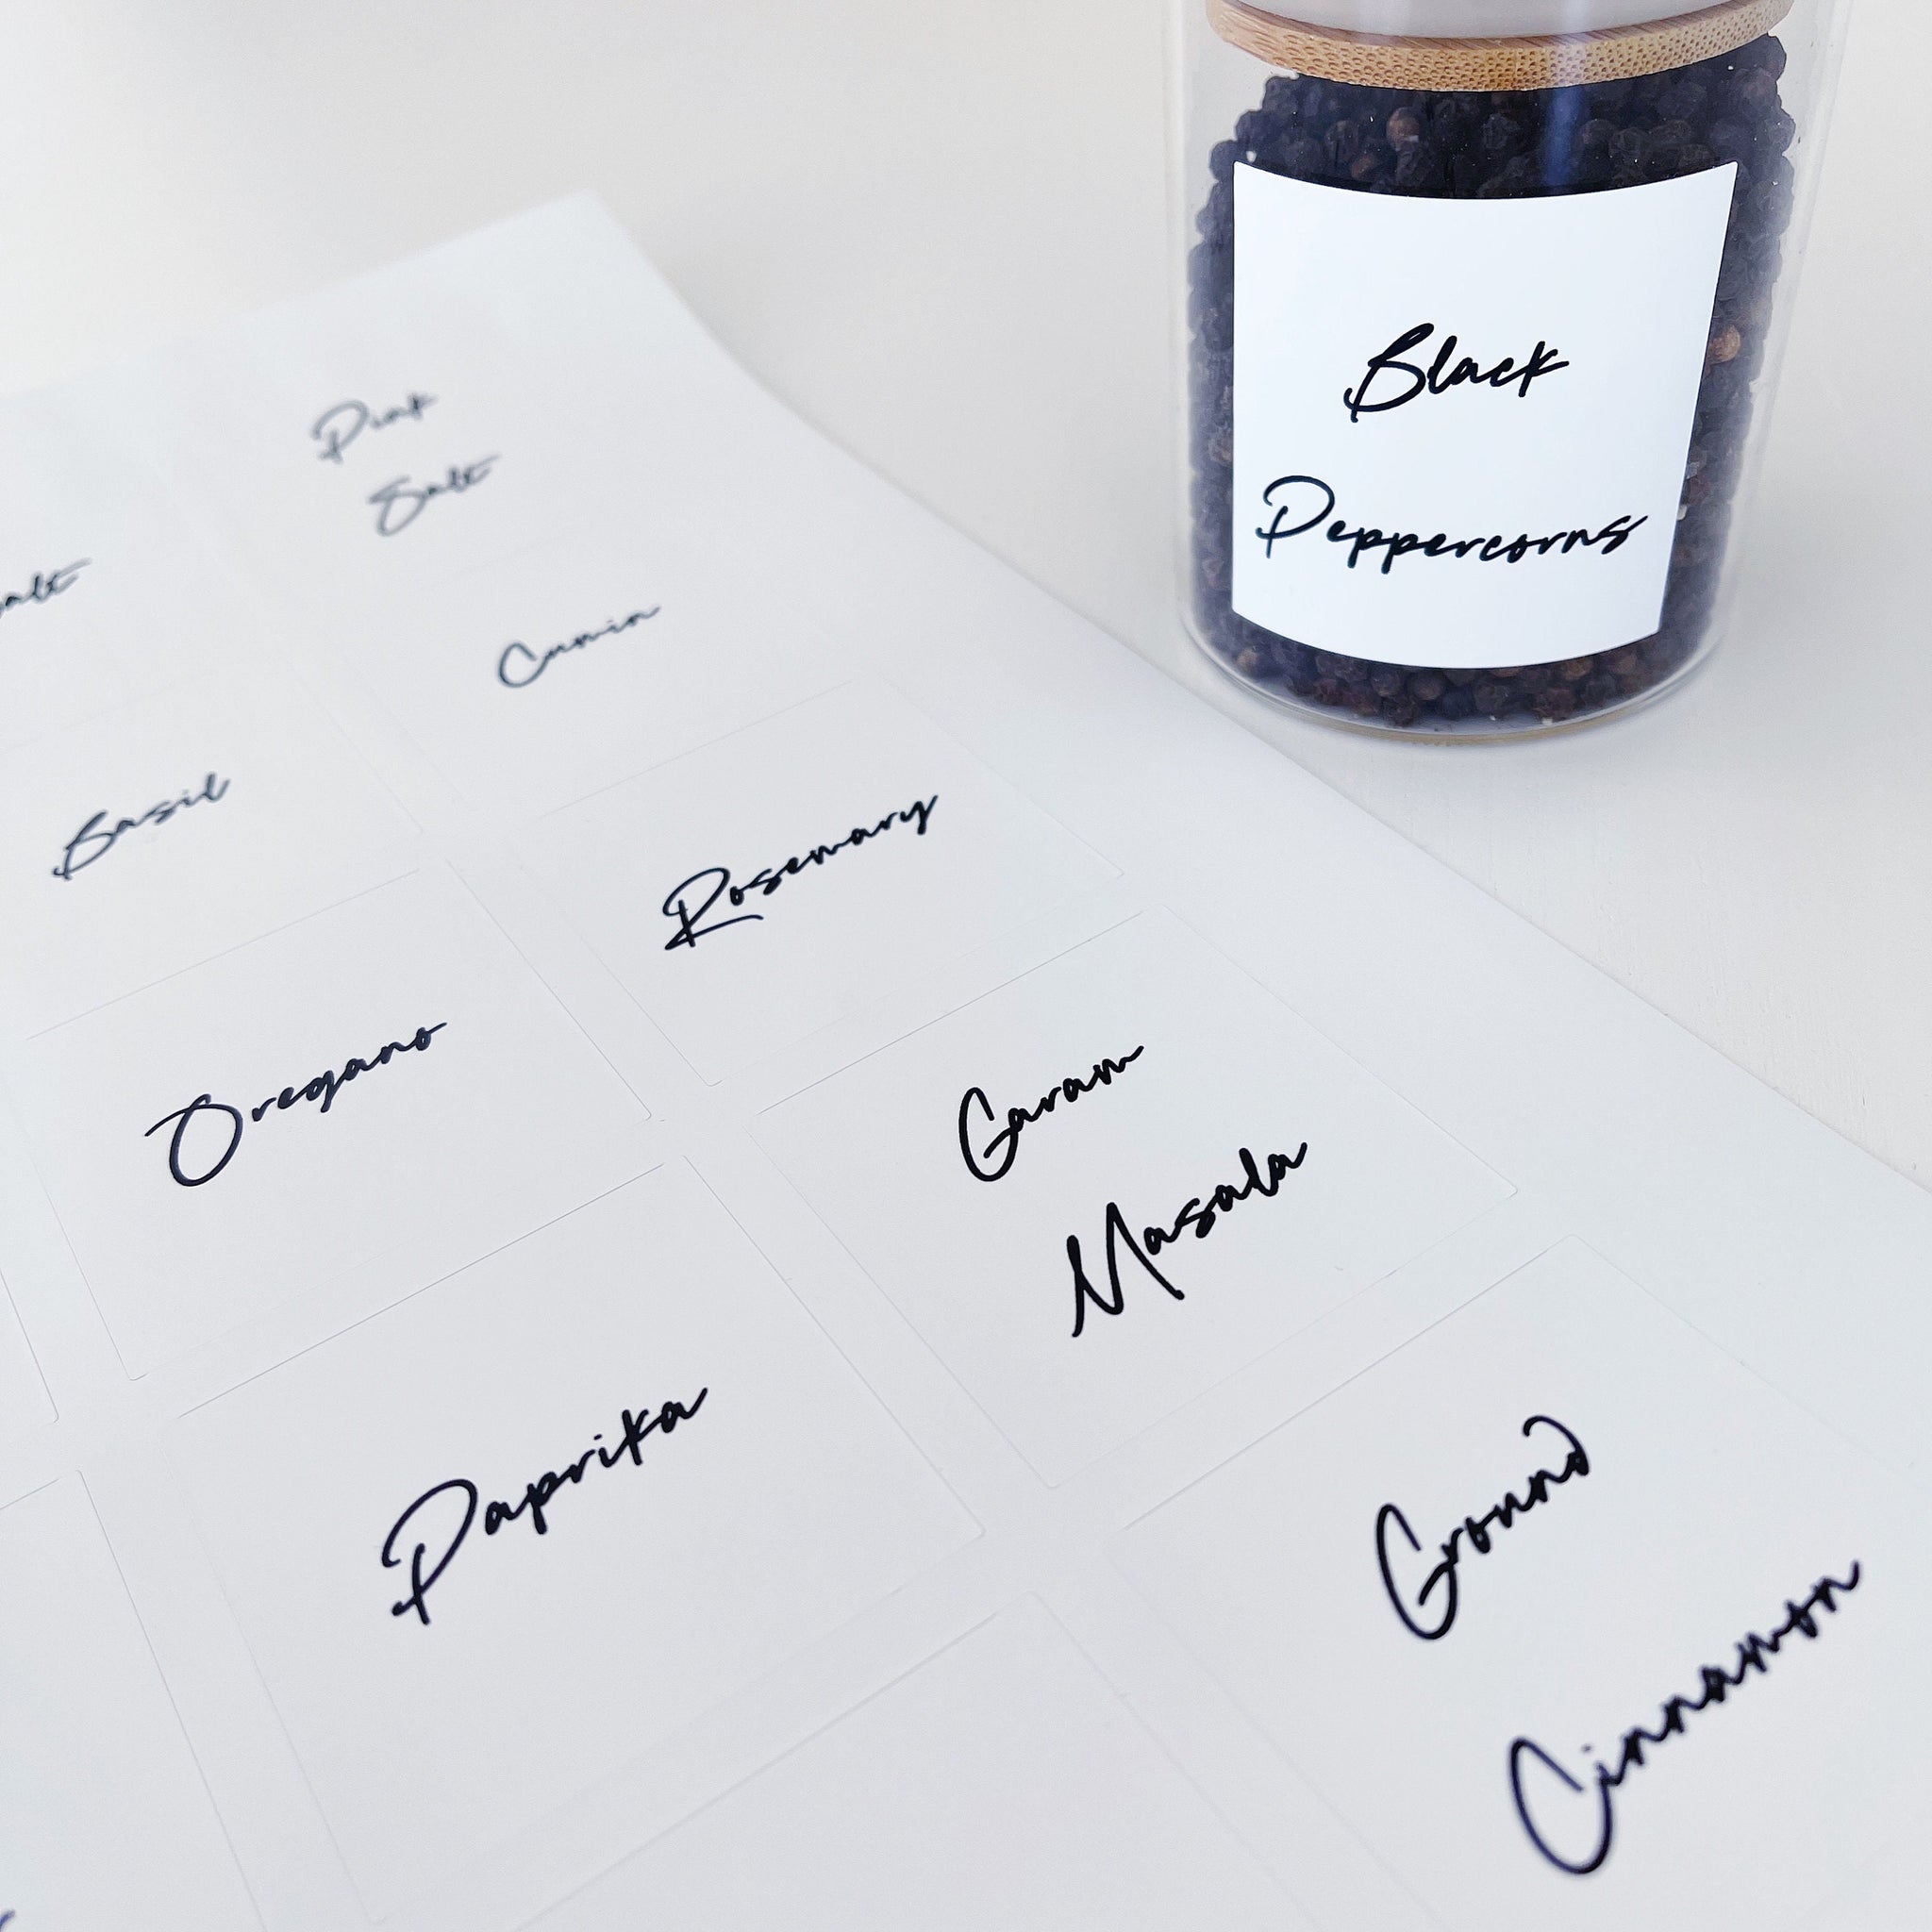 Black
Peppercorns
Pink
Salt
Cumin
Basil
Rosemary
Oregano
Garam
Masala
Paprika
Ground
Cinnamon